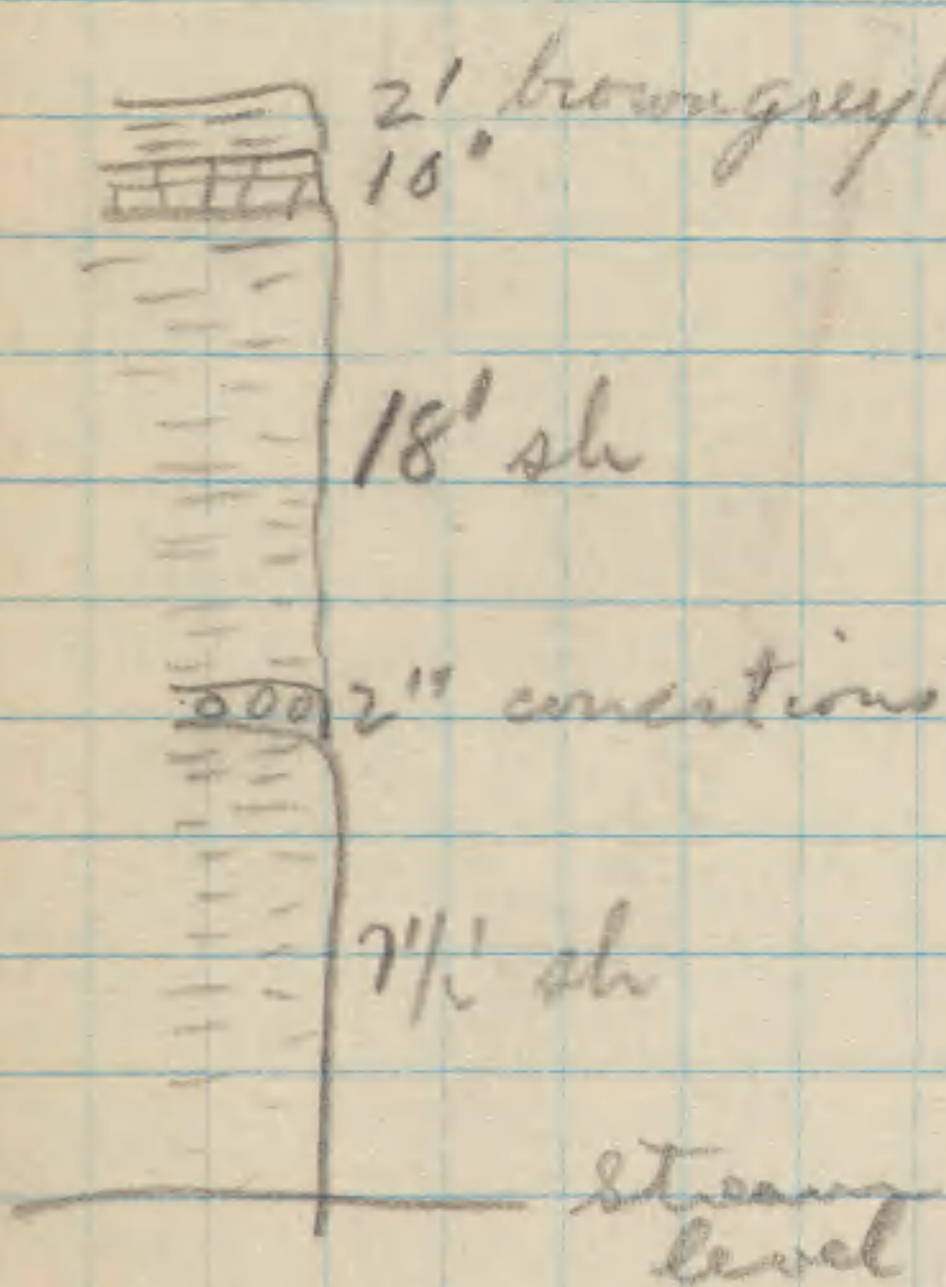 2' brown grey
10"
18' sh
2" concretions
7 1/2' sh
stream
level